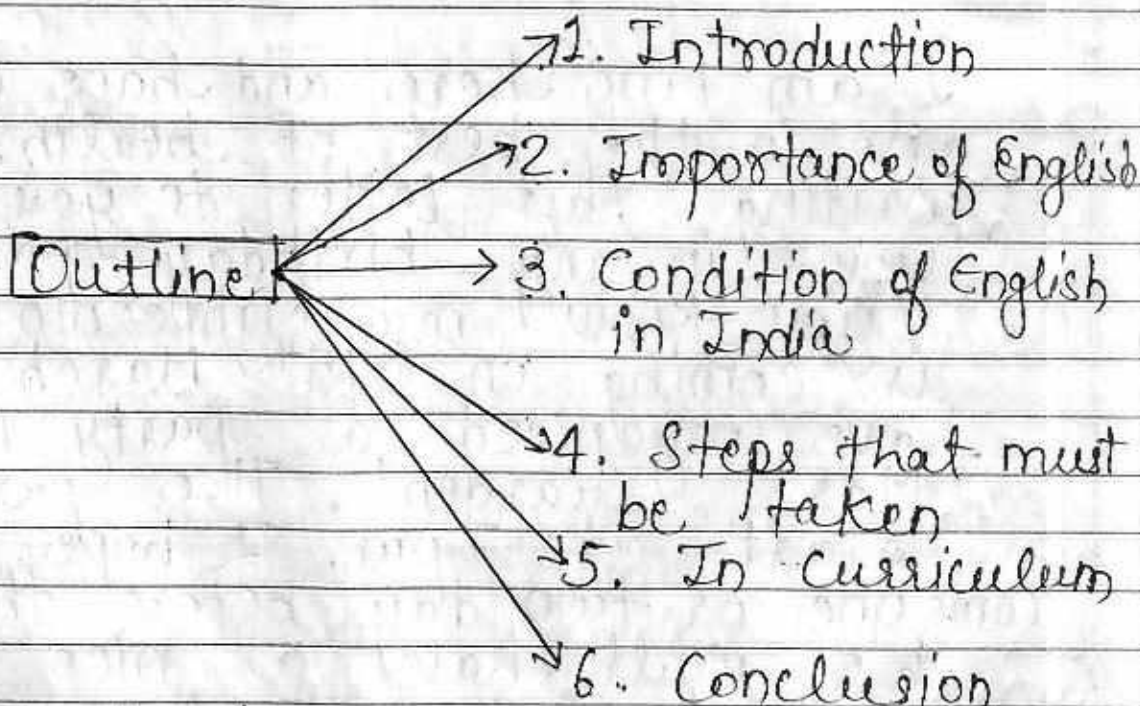 1. Introduction
2. Importance of English
Outline
3. Condition of English
in India
4. Steps that must
be taken
5. In curriculum
6. Conclusion